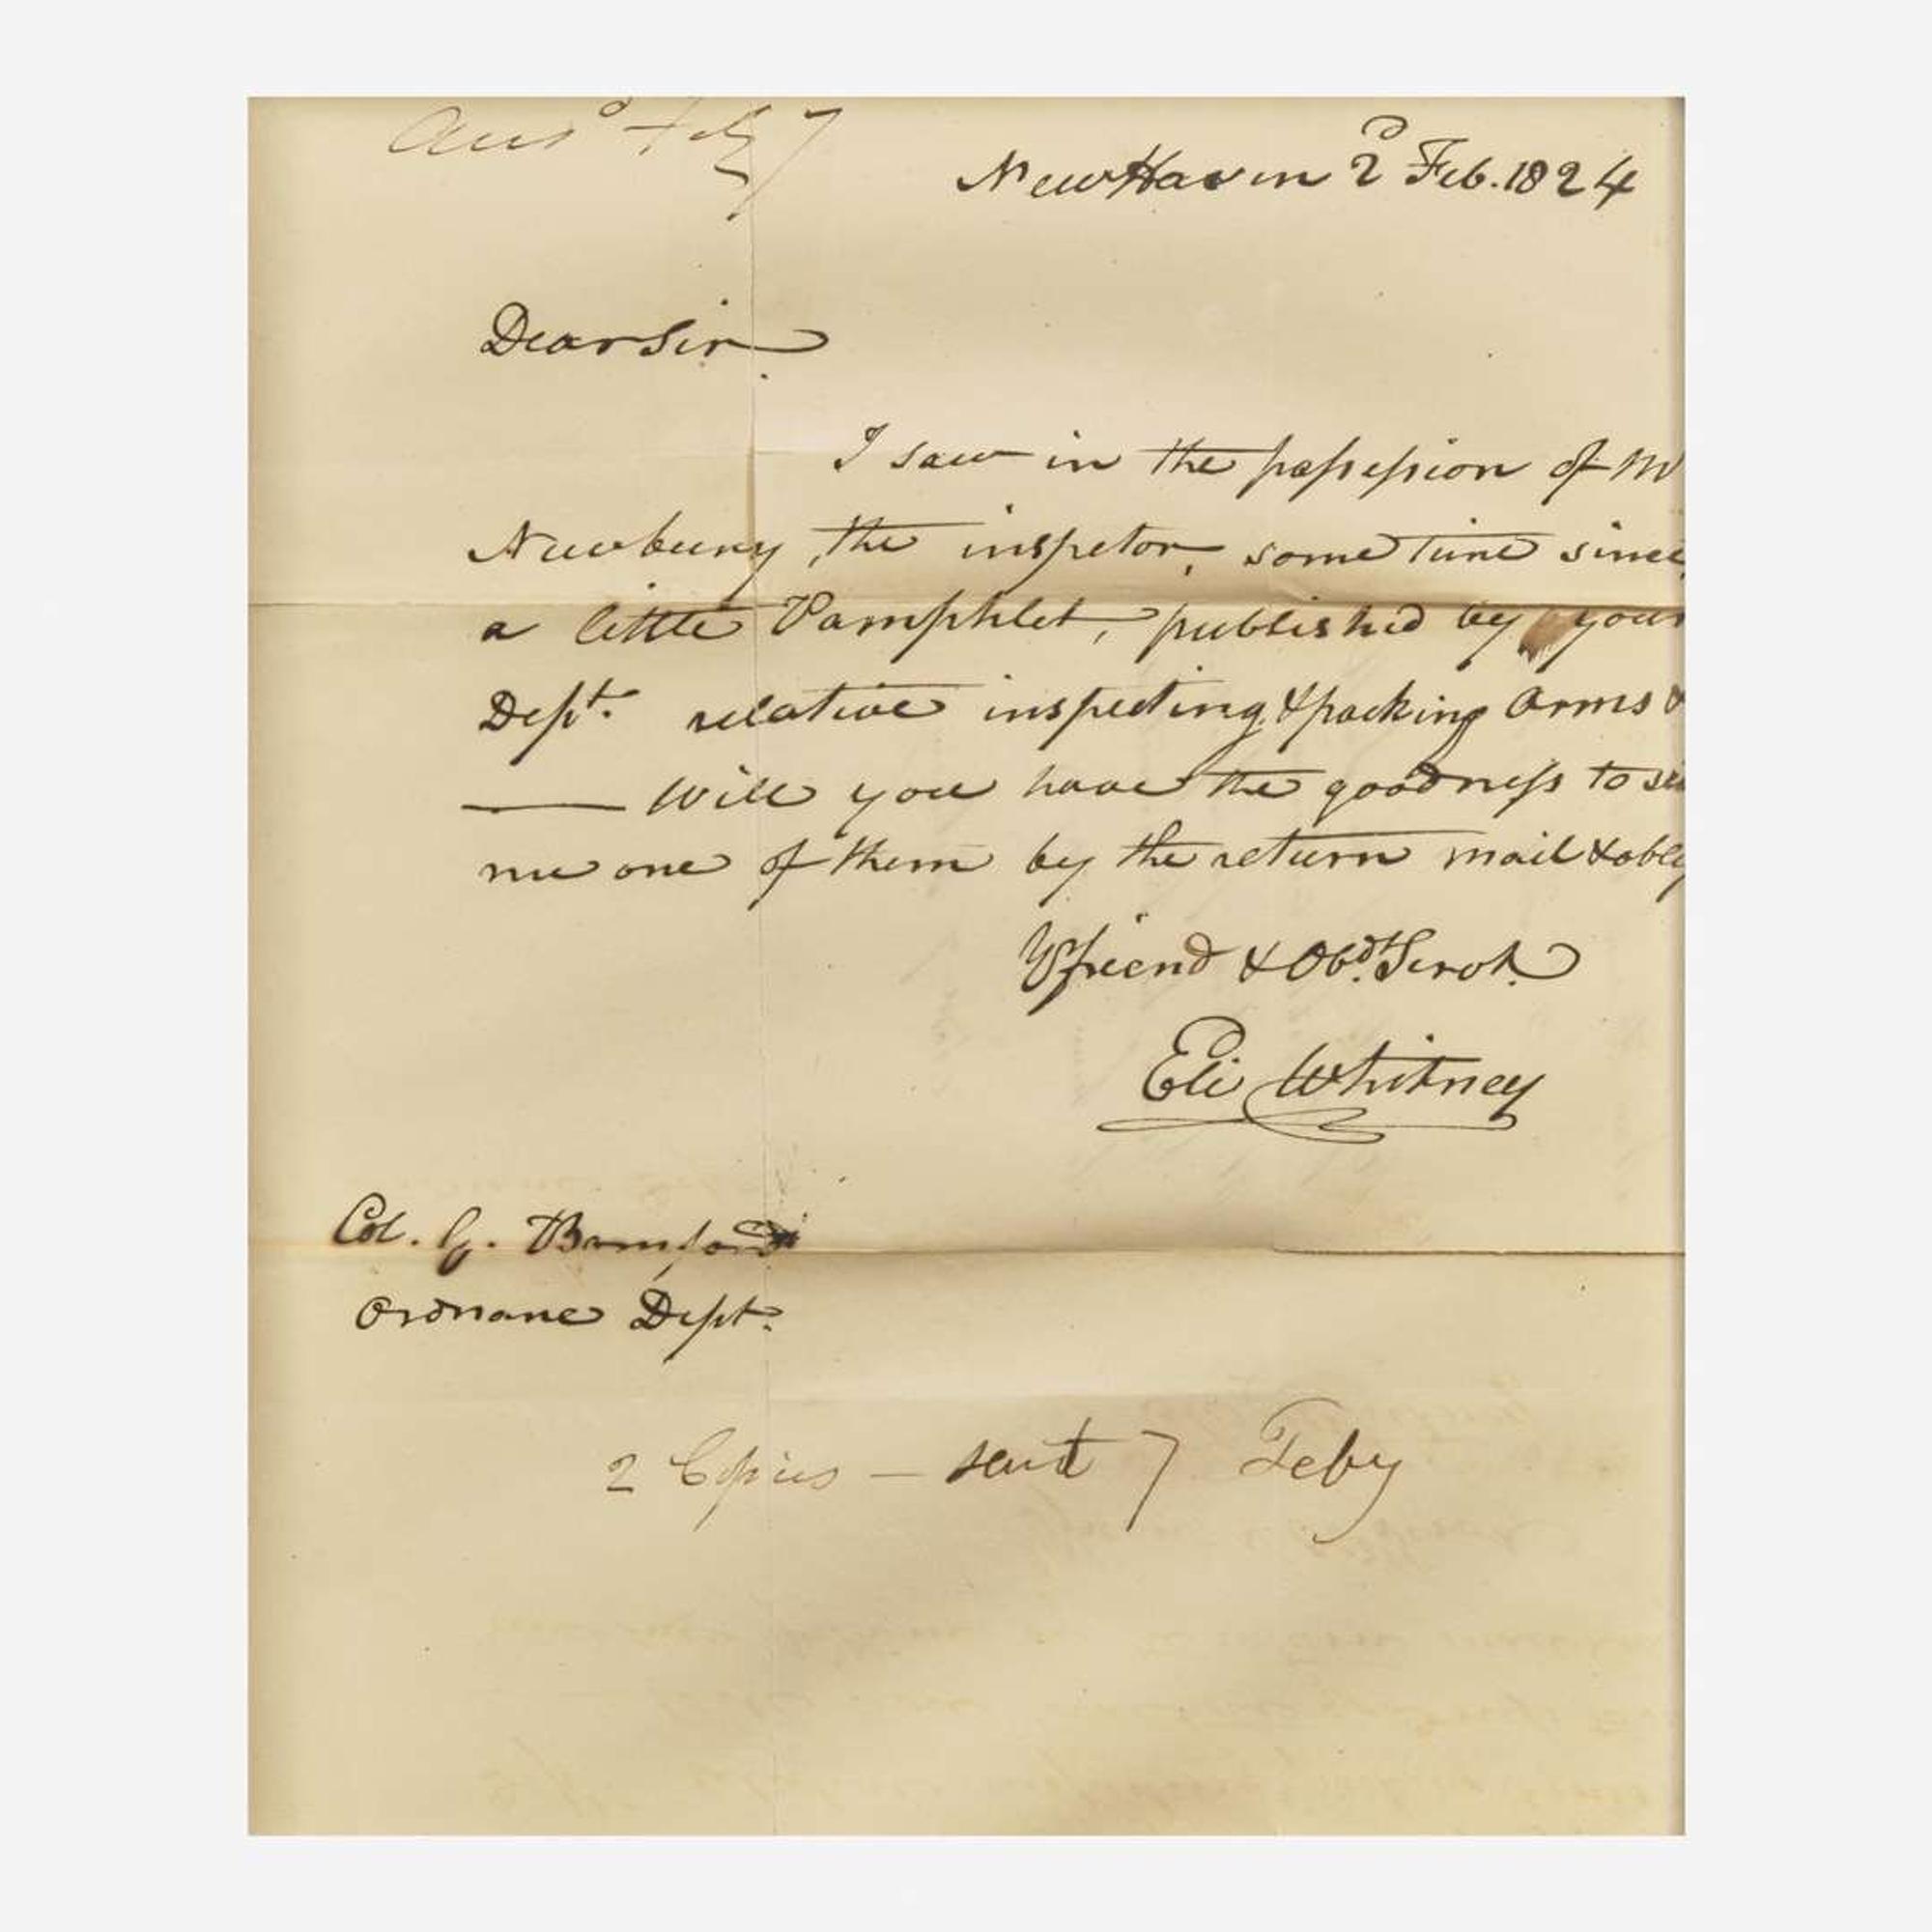 Ansd Feby 7
New Haven 2d Feb. 1824
Dear Sir.
I saw in the possession of M
Newbury, the inspetor, some time since,
a little Pamphlet, published by your
Dept. relative inspecting & packing Arms &
— Will you have the goodness to sen
me one of them by the return mail & oblg
Yr friend & Obdt. Servt.
Eli Whitney
Col. G. Bomford
Ordnance Dept.
2 Copies — sent 7 Feby